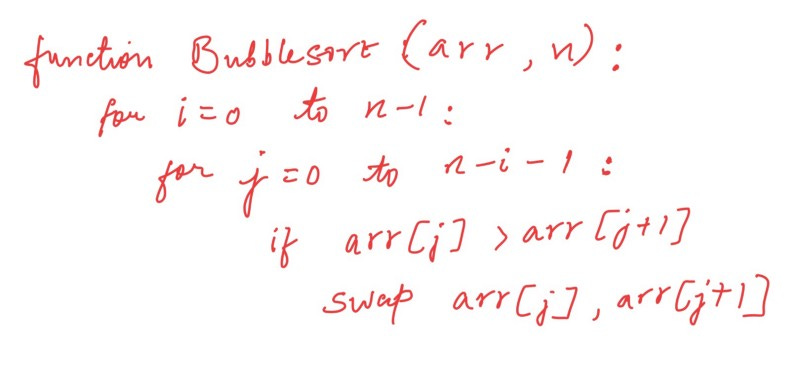 function Bubblesort (arr, n):
for i=0 to n-1:
for j=0 to n-i-1:
if arr[j] > arr[j+1]
swap arr[j], arr[j+1]